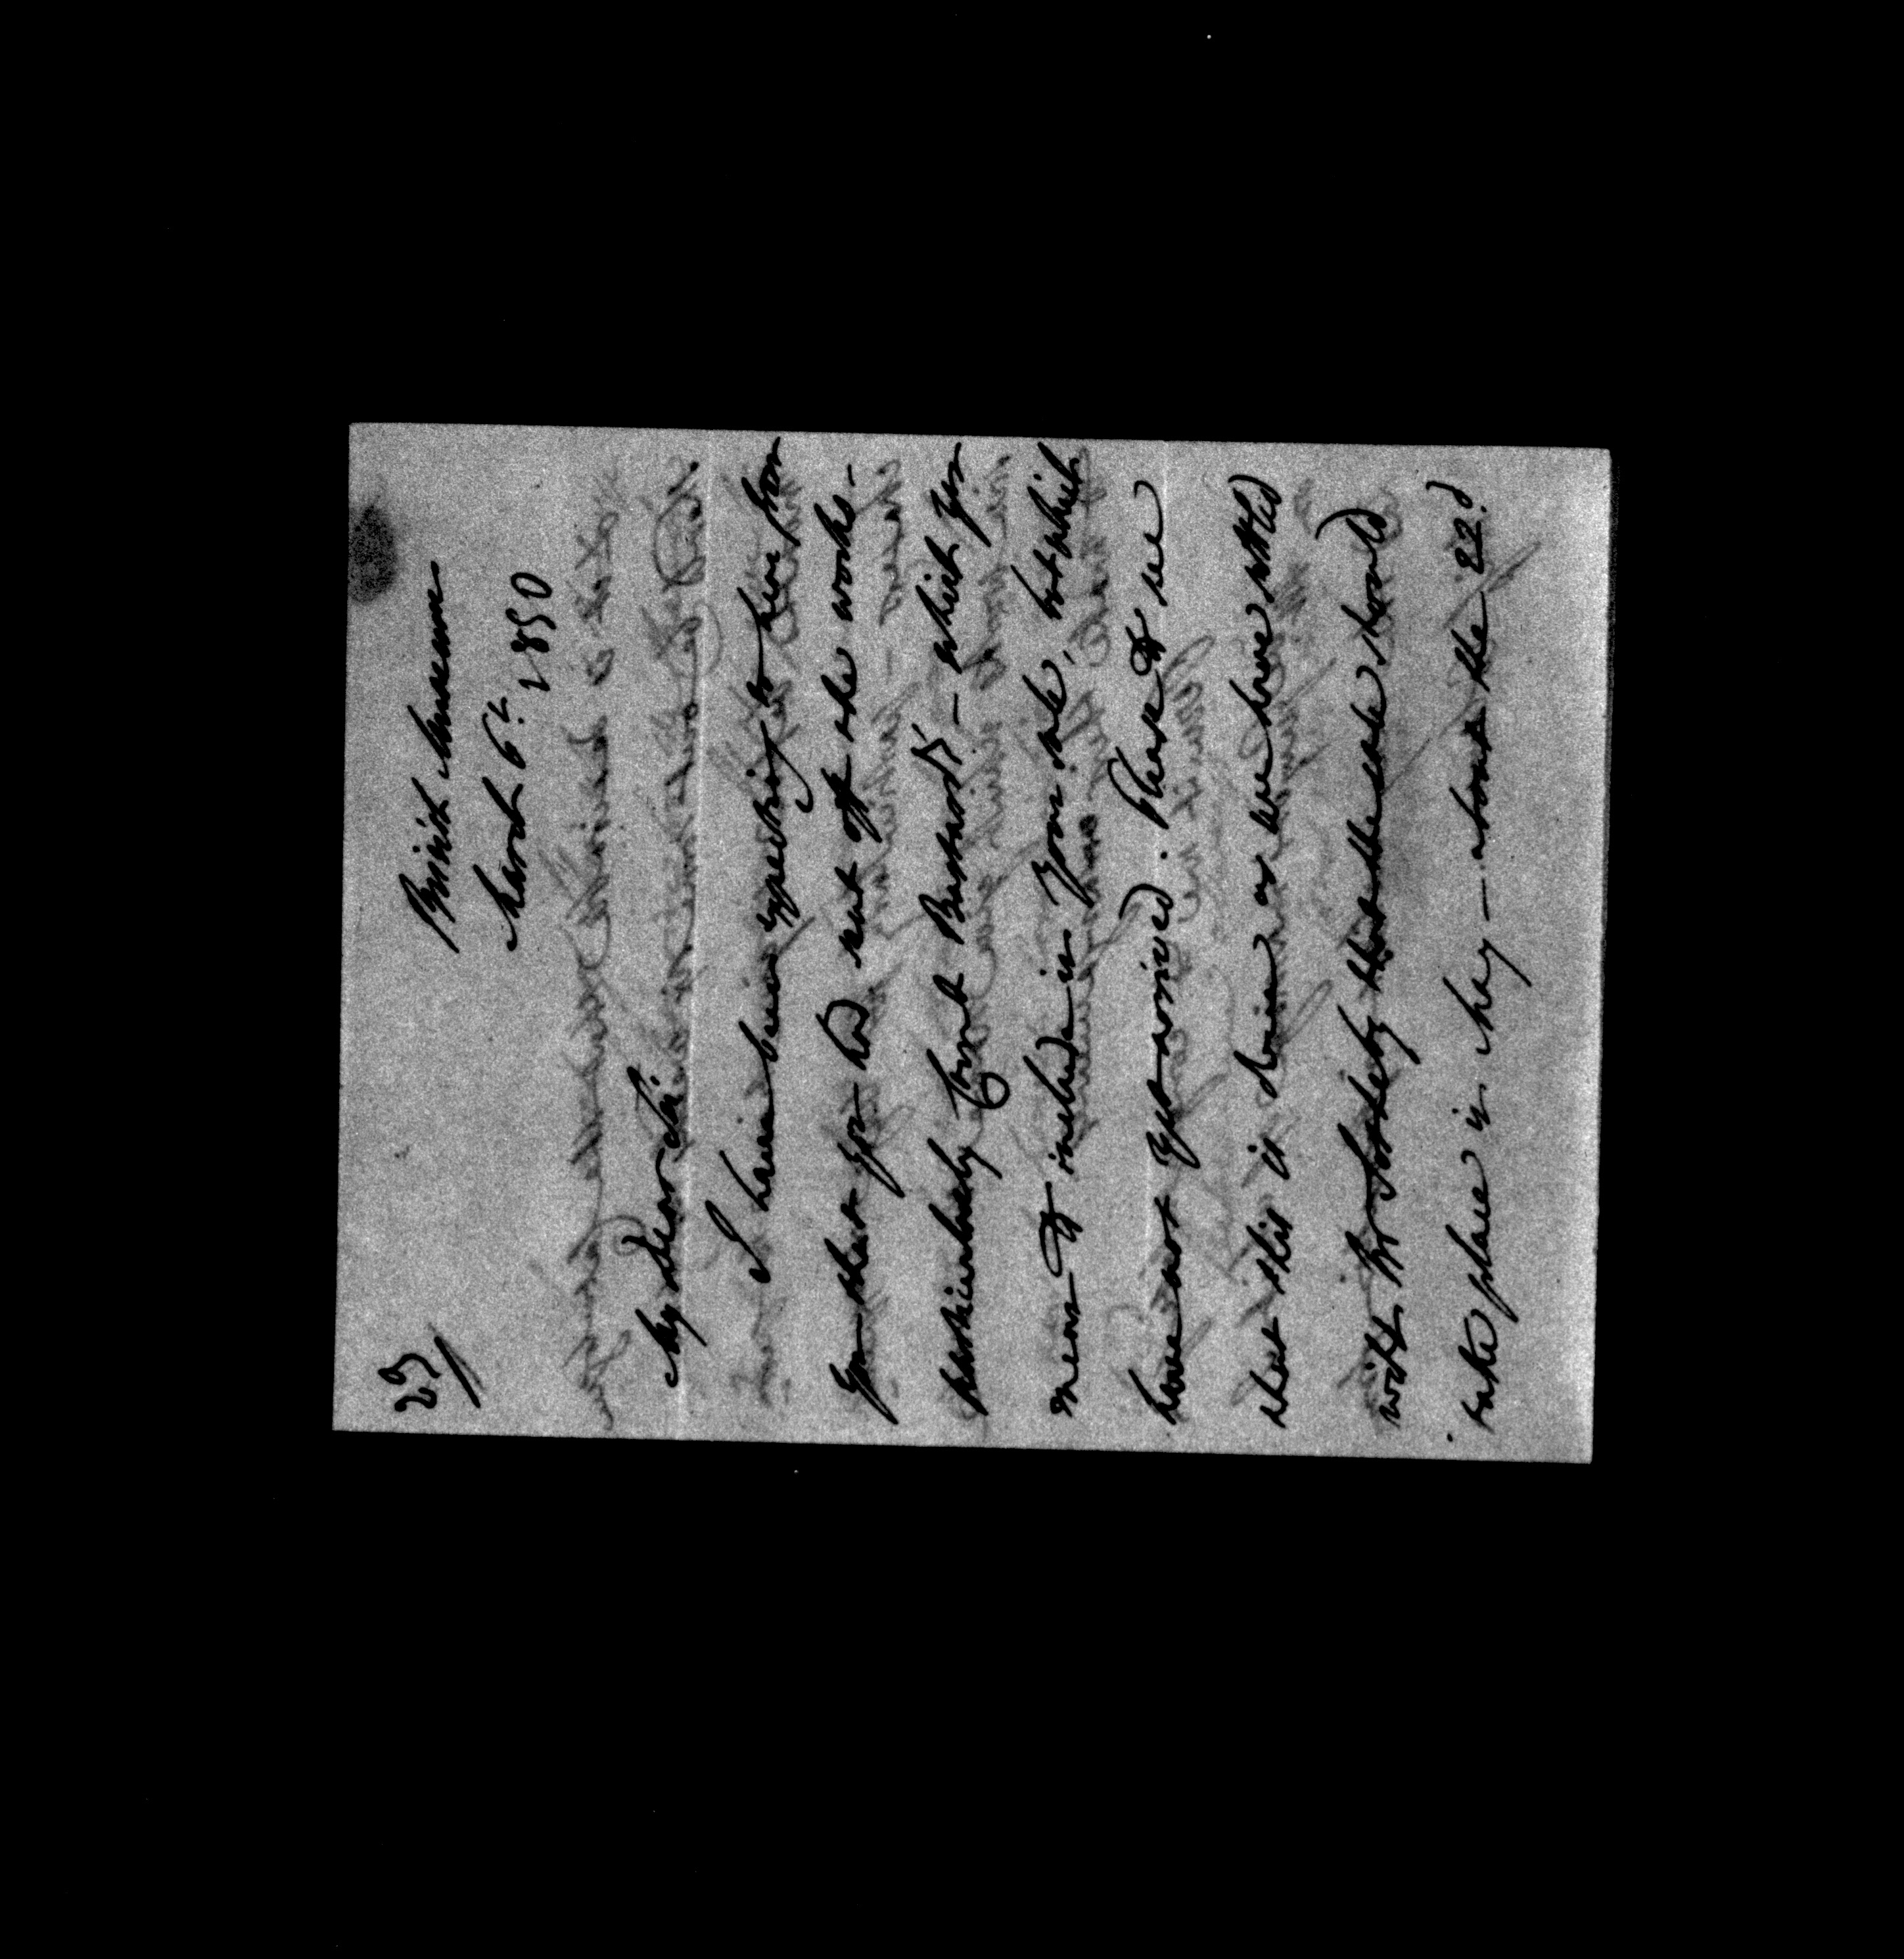 27/
British Museum
March 6th
1850
My dear Sir
I have been expecting to hear from
you that you had sent off the works –
particularly Count Bastard's – which you
mean to include in your sale, but which
have not yet arrived. Please to see
that this is done as we have settled
with Mr Sotheby that the sale should
take place in May – about the 22d